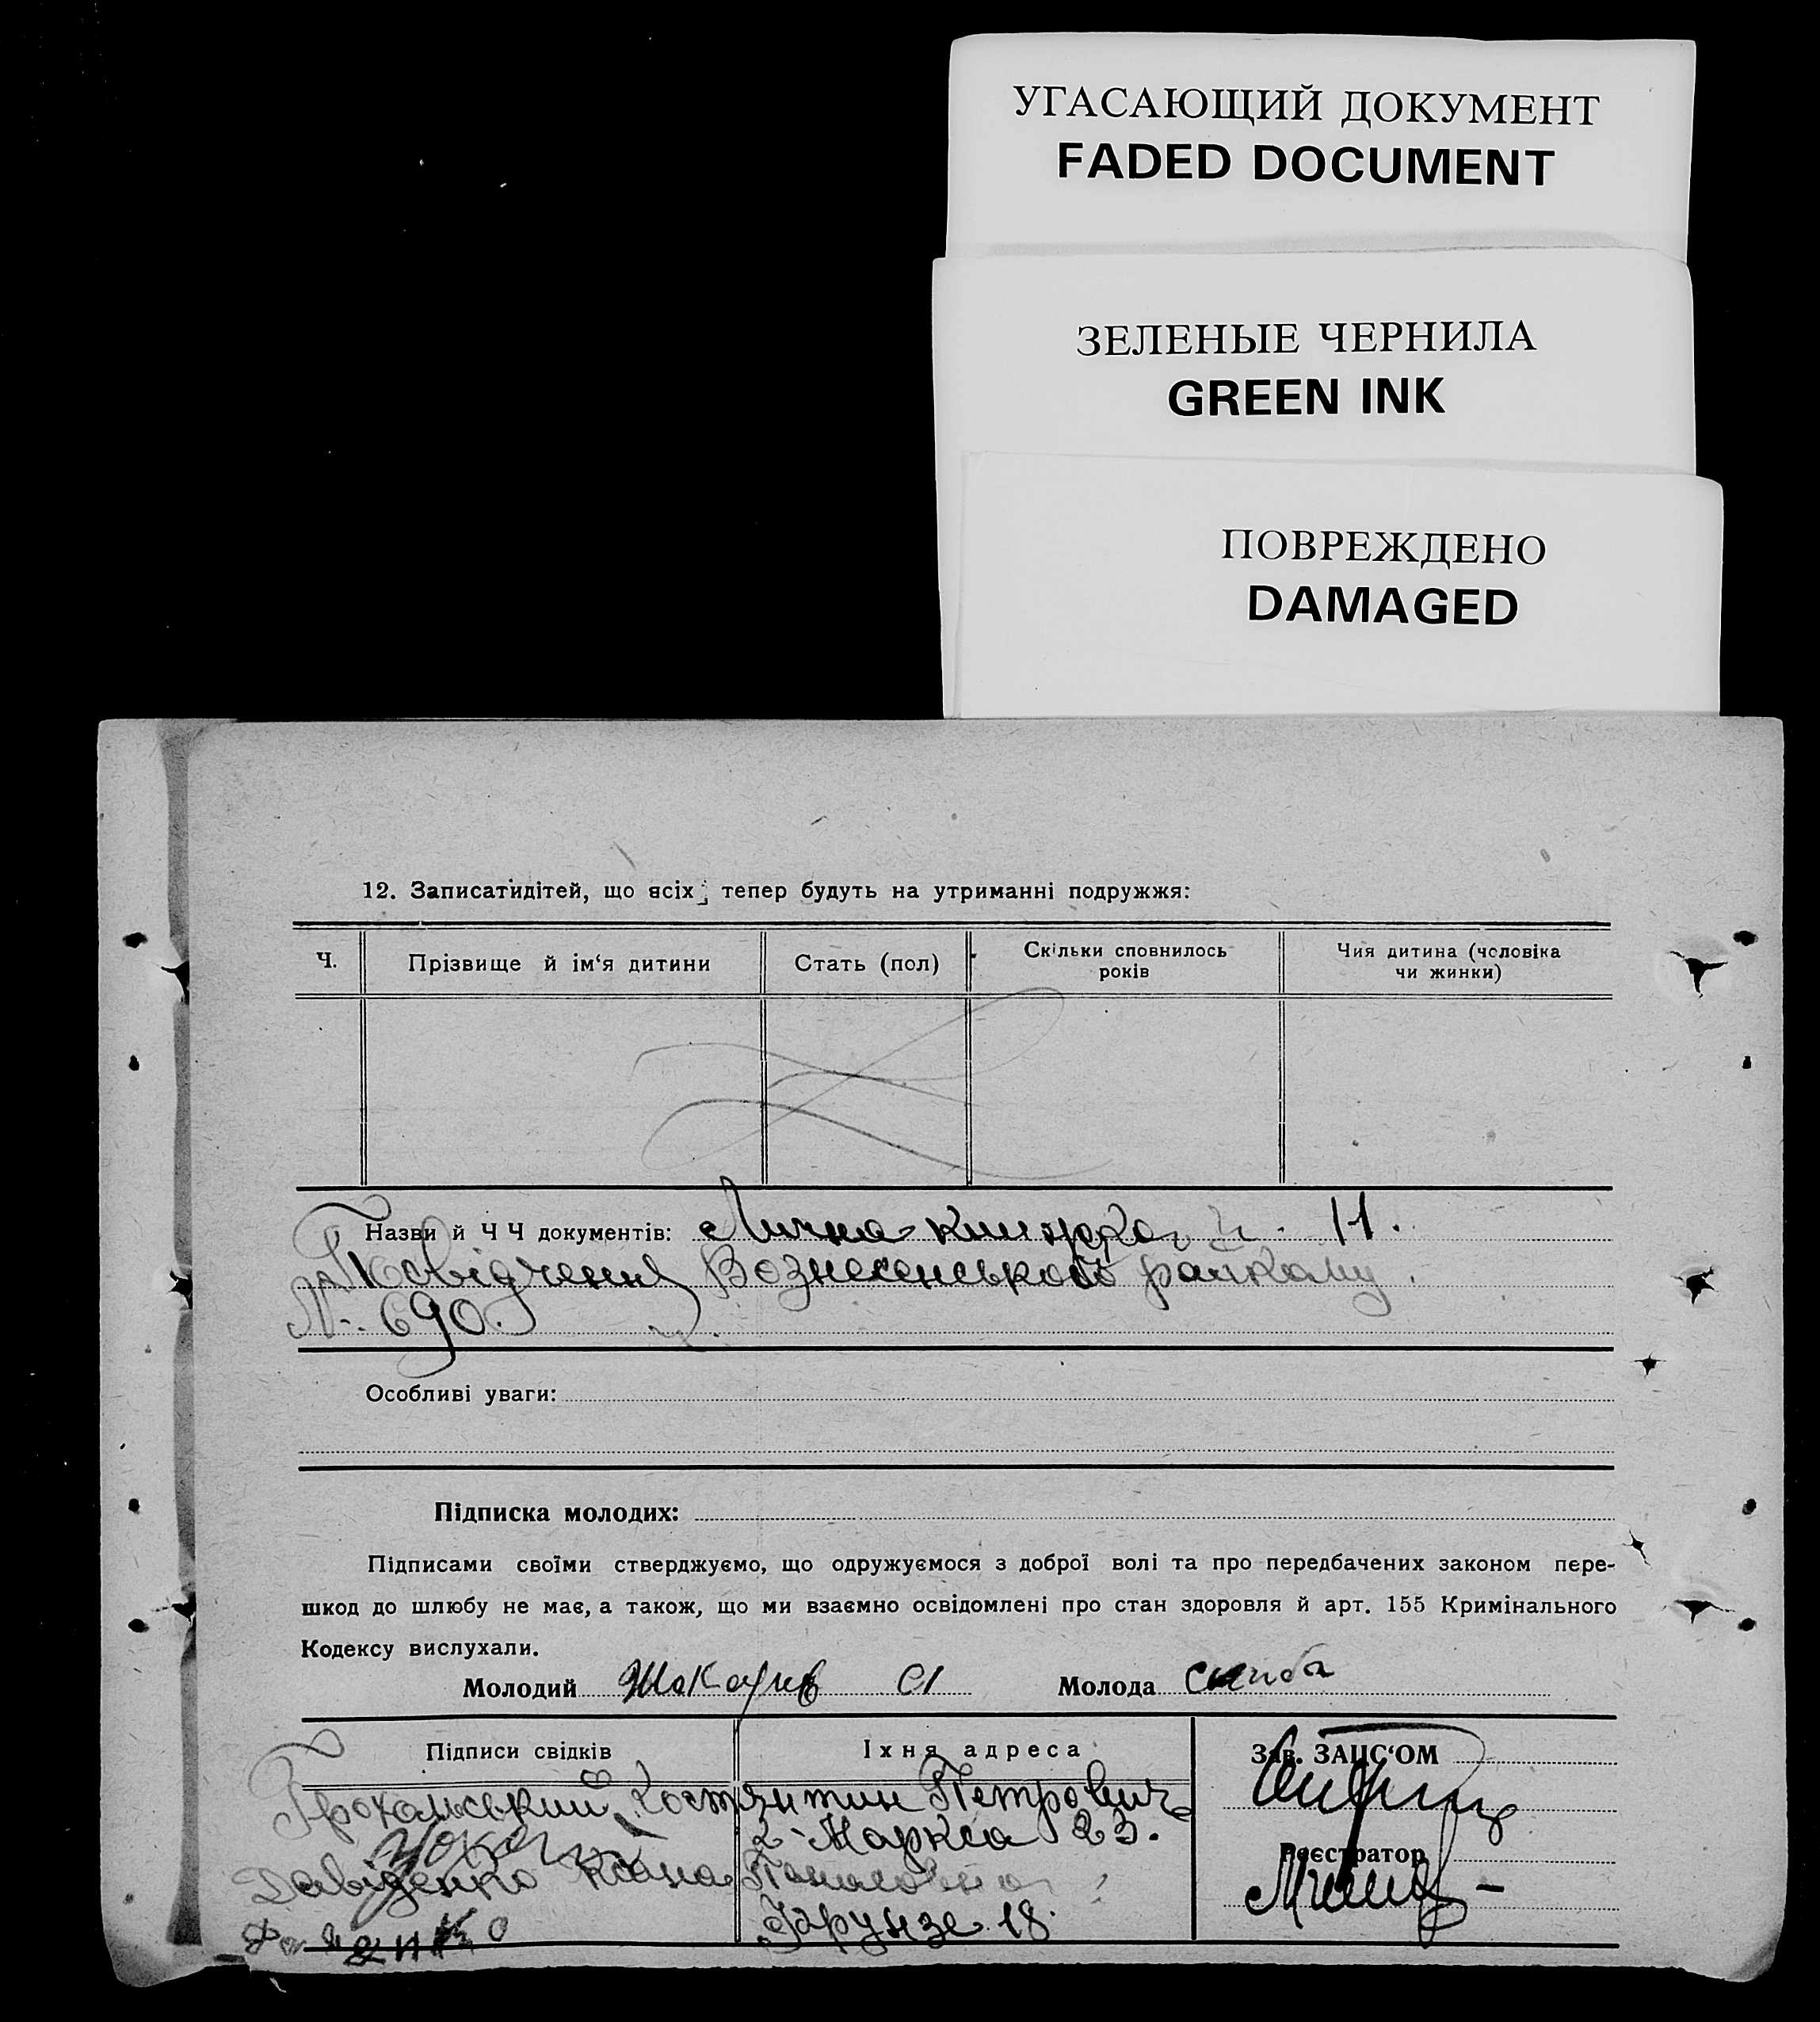 УГАСАЮЩИЙ ДОКУМЕНТ
FADED DOCUMENT
ЗЕЛЕНЫЕ ЧЕРНИЛА
GREEN INK
ПОВРЕЖДЕНО
DAMAGED
12. Записатидітей, що всіх тепер будуть на утриманні подружжя:
Ч. Прізвище й ім‘я дитини Стать (пол) Скільки сповнилось років Чия дитина (чоловіка чи жинки)
Назви й Ч Ч документів: Лична книжка ч. 11.
Посвідчення Вознесенського райкому
№ 690.
Особливі уваги:
Підписка молодих:
Підписами своїми стверджуємо, що одружуємося з доброї волі та про передбачених законом пере-
шкод до шлюбу не має, а також, що ми взаємно освідомлені про стан здоровля й арт. 155 Кримінального
Кодексу вислухали.
Молодий Молода
Підписи свідків Їхня адреса Зав. ЗАЦС‘ОМ
Костянтин Петрович
2-Маркса 23.
Реєстратор
Давіденко
Фрунзе 18.